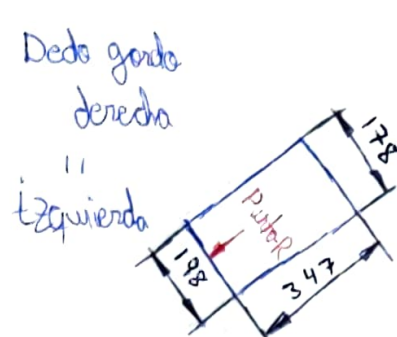 Dedo gordo
derecha
"
izquierda
178
PintaR
198
347